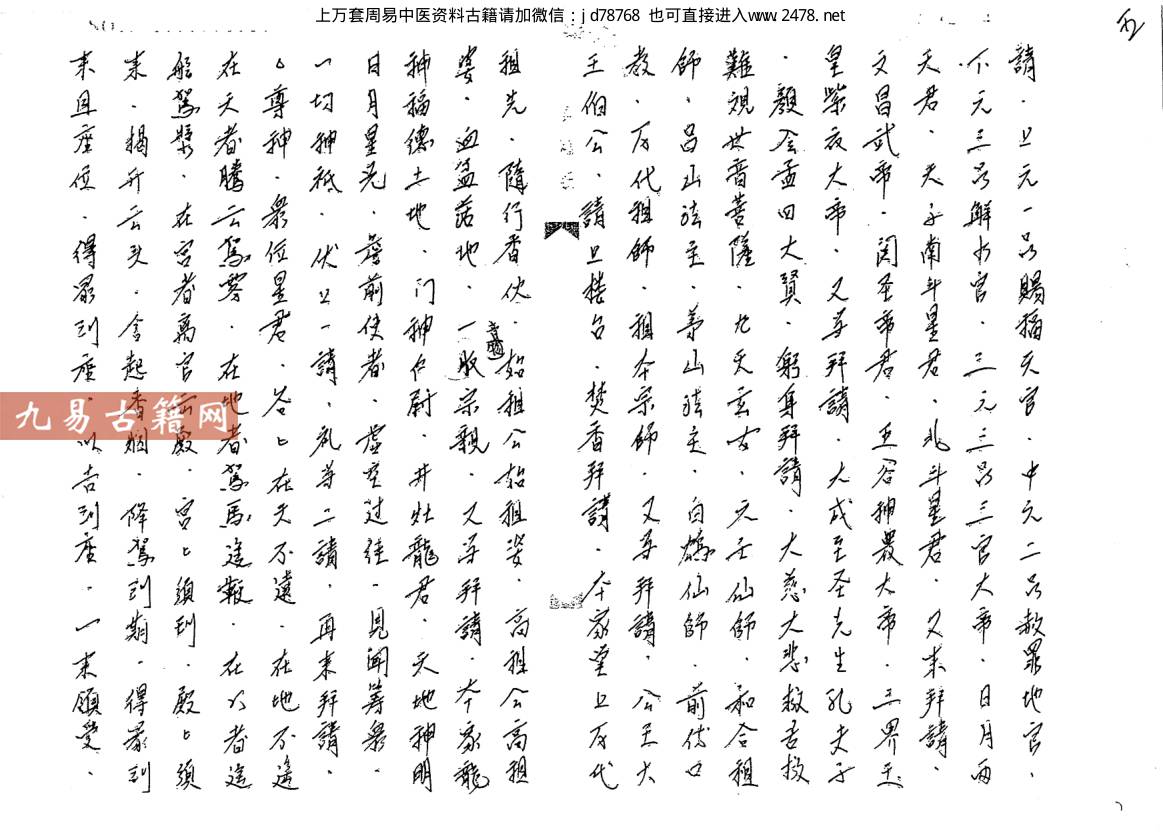 上万套周易中医资料古籍请加微信：jd78768 也可直接进入www.2478.net
五
請．上元一品赐福天官．中元二品赦罪地官．
下元三品解水官．三元三品三官大帝．日月兩
天君．天子南斗星君．北斗星君．又来拜請．
文昌武帝．関圣帝君．五谷神農大帝．三界玉
皇紫衣大帝．又节拜請．大成至圣先生孔夫子
．顏会孟四大賢．躬身拜請．大慈大悲救苦救
難覌世音菩薩．九天玄女．元壬仙師．和合祖
師．吕山法主．茅山法主．白鶴仙師．前传口
教．历代祖师．祖本宗師．又节拜請．公王大
王伯公．請上楼台．焚香拜請．本家堂上历代
祖先．隨行香伙．始祖公始祖婆．高祖公高祖
婆．血盆落地．一脉宗親．又节拜請．本家龍
神福德土地．门神户尉．井灶龍君．天地神明
日月星光．簷前使者．虚空过往．見闻等衆．
一切神祇．伏上一請．礼节二請．再来拜請．
尊神．衆位星君．谷谷在天不遠．在地不遙
在天者騰云駕雾．在地者駕馬遙鞭．在水者遙
船駕槳．在宫者离宫云殿．宫宫須到．殿殿須
来．揭开云头．含起香烟．降駕到期．得衆到
来且座位．得衆到座．以吉到座．一来領受．
九易古籍网